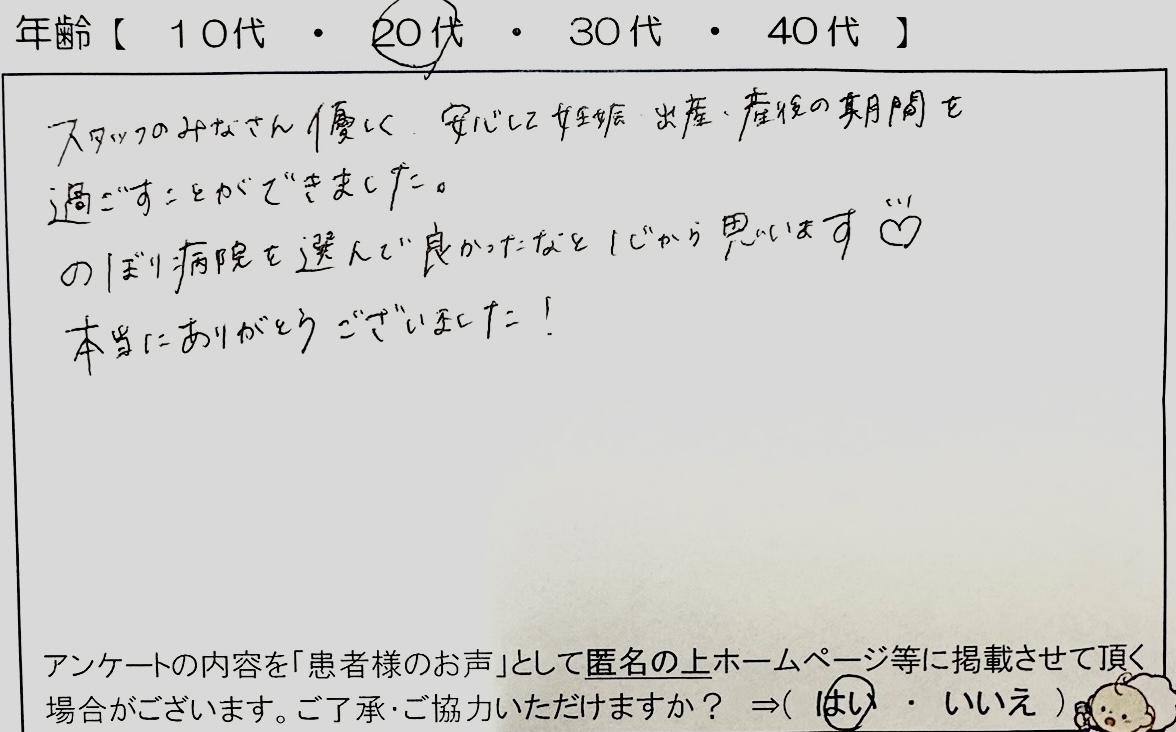 年齢【　１０代　・　２０代　・　３０代　・　４０代　】
スタッフのみなさん優しく、安心して妊娠・出産・産後の期間を
過ごすことができました。
のぼり病院を選んで良かったなと心から思います♡
本当にありがとうございました！
アンケートの内容を「患者様のお声」として匿名の上ホームページ等に掲載させて頂く
場合がございます。ご了承・ご協力いただけますか？　⇒(　はい　・　いいえ　)